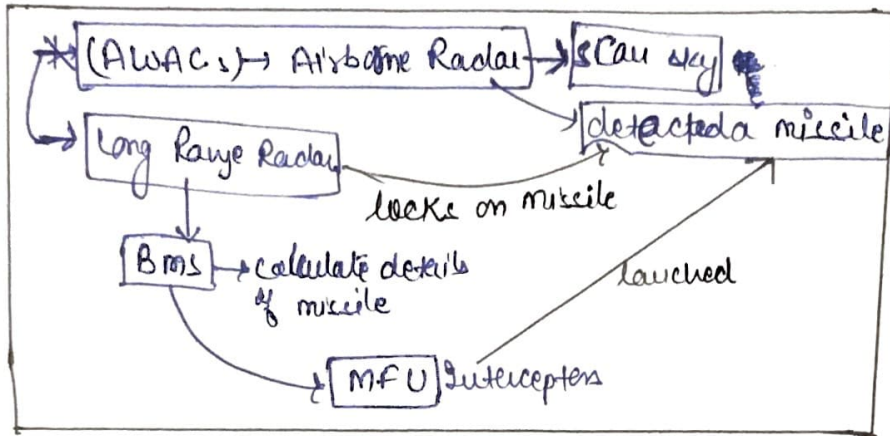 (AWACs) → Airborne Radar → scan sky
detected a missile
Long Range Radar
locks on missile
BMS → calculate details
of missile
lauched
MFU Interceptors